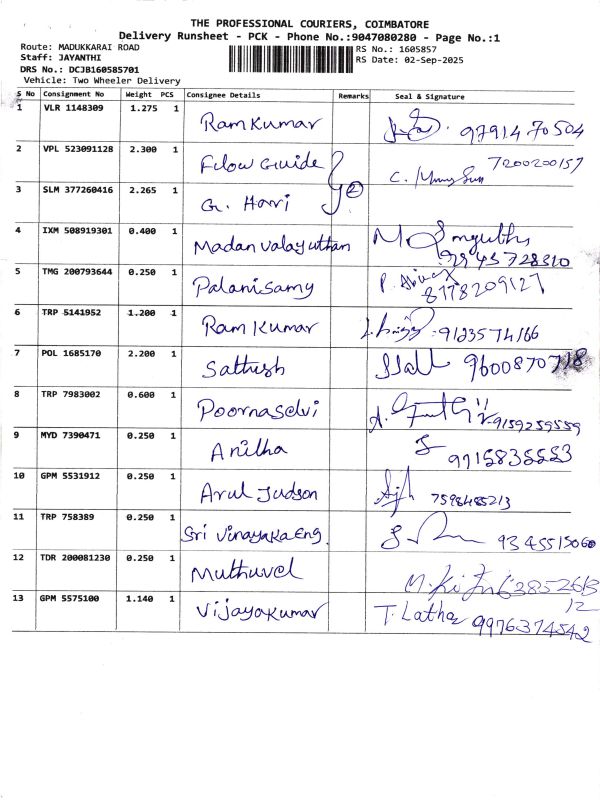 THE PROFESSIONAL COURIERS, COIMBATORE
Delivery Runsheet - PCK - Phone No.:9047080280 - Page No.:1
Route: MADUKKARAI ROAD
RS No.: 1605857
Staff: JAYANTHI
RS Date: 02-Sep-2025
DRS No.: DCJB160585701
Vehicle: Two Wheeler Delivery
S No Consignment No Weight PCS Consignee Details Remarks Seal & Signature
1 VLR 1148309 1.275 1 Ramkumar 9791470504
2 VPL 523091128 2.300 1 Flow Guide 7200200157
3 SLM 377260416 2.265 1 G. Harri 2
4 IXM 508919301 0.400 1 Madan valayuttham
5 TMG 200793644 0.250 1 Palanisamy 8778209127
6 TRP 5141952 1.200 1 Ram Kumar 9123574166
7 POL 1685170 2.200 1 Sathish 9600870718
8 TRP 7983002 0.600 1 Poornaselvi 9159259559
9 MYD 7390471 0.250 1 Anitha 9715835553
10 GPM 5531912 0.250 1 Arul Judson 7598485213
11 TRP 758389 0.250 1 Sri Vinayaka Eng. 9345515060
12 TDR 200081230 0.250 1 Muthuvel 63852613
12
13 GPM 5575100 1.140 1 Vijayakumar T. Latha 9976374542